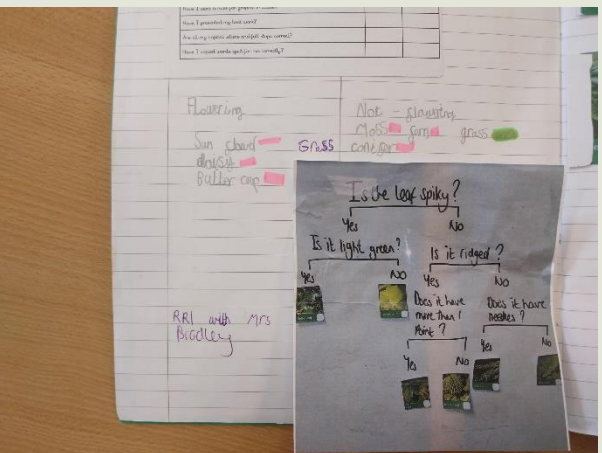 Have I presented my best work?
Are all my capital letters and full stops correct?
Flowering
daisy
Butter cup
Grass
Not - flowering
Moss fern grass
conifer
RRI with Mrs
Bradley
Is the leaf spiky?
Yes No
Is it light green?
Yes No
Is it ridged?
Yes No
Does it have
more than 1
Point?
Yes No
Does it have
needles?
Yes No